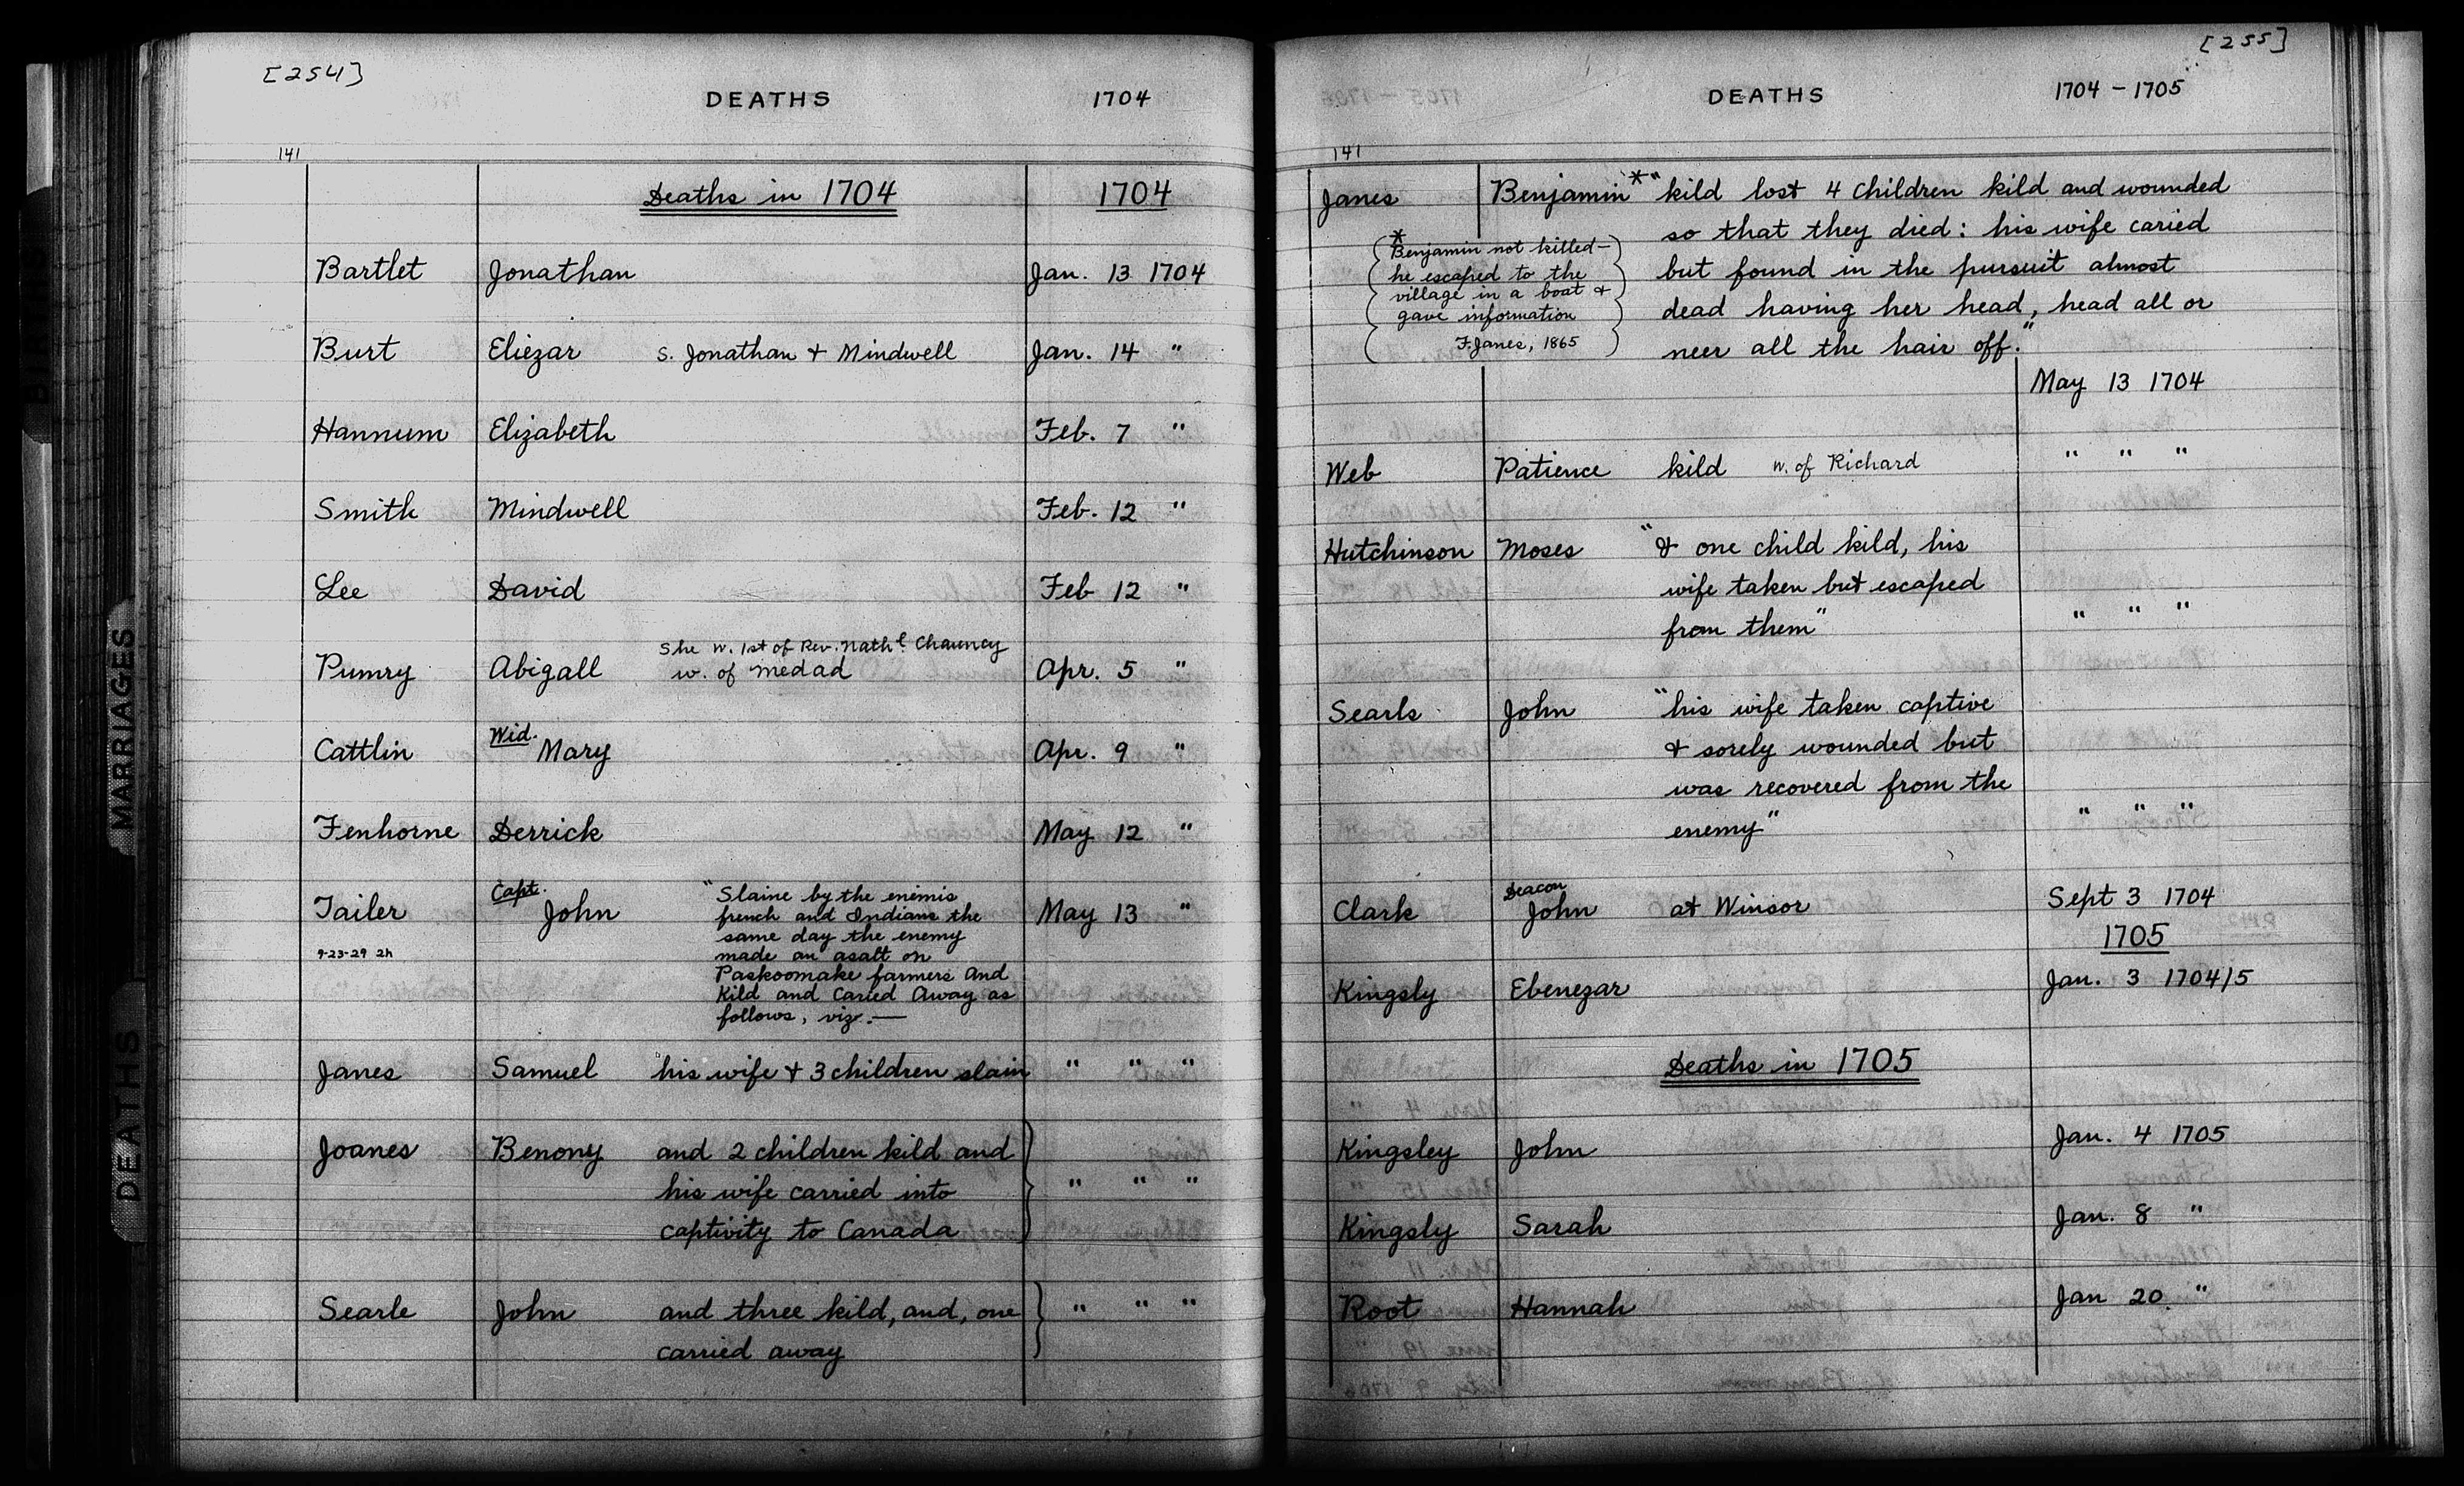 [254]
DEATHS 1704
141
Deaths in 1704 1704
Bartlet Jonathan Jan. 13 1704
Burt Eliezar s. Jonathan + Mindwell Jan. 14 "
Hannum Elizabeth Feb. 7 "
Smith Mindwell Feb. 12 "
Lee David Feb 12 "
She w. 1st of Rev. Nathl Chauncy
Pumry Abigall w. of Medad Apr. 5 "
Wid.
Cattlin Mary Apr. 9 "
Fenhorne Derrick May 12 "
Capt. "Slaine by the enemis
Tailer John french and Indians the May 13 "
same day the enemy
9-23-29 2h made an asalt on
Paskoomake farmers and
Kild and Caried Away as
follows, viz.—
Janes Samuel "his wife + 3 children slain " " "
Joanes Benony and 2 children kild and
his wife carried into " " "
captivity to Canada
Searle John and three kild, and, one " " "
carried away
[255]
DEATHS 1704 - 1705
141
Janes Benjamin *" kild lost 4 children kild and wounded
so that they died: his wife caried
but found in the pursuit almost
dead having her head, head all or
neer all the hair off."
*
Benjamin not killed—
he escaped to the
village in a boat +
gave information
F. Janes, 1865
May 13 1704
Web Patience kild w. of Richard " " "
Hutchinson Moses "& one child kild, his
wife taken but escaped
from them" " " "
Searls John "his wife taken captive
+ sorely wounded but
was recovered from the
enemy" " " "
Deacon
Clark John at Winsor Sept 3 1704
1705
Kingsly Ebenezar Jan. 3 1704/5
Deaths in 1705
Kingsley John Jan. 4 1705
Kingsly Sarah Jan. 8 "
Root Hannah Jan 20. "
MARRIAGES
DEATHS